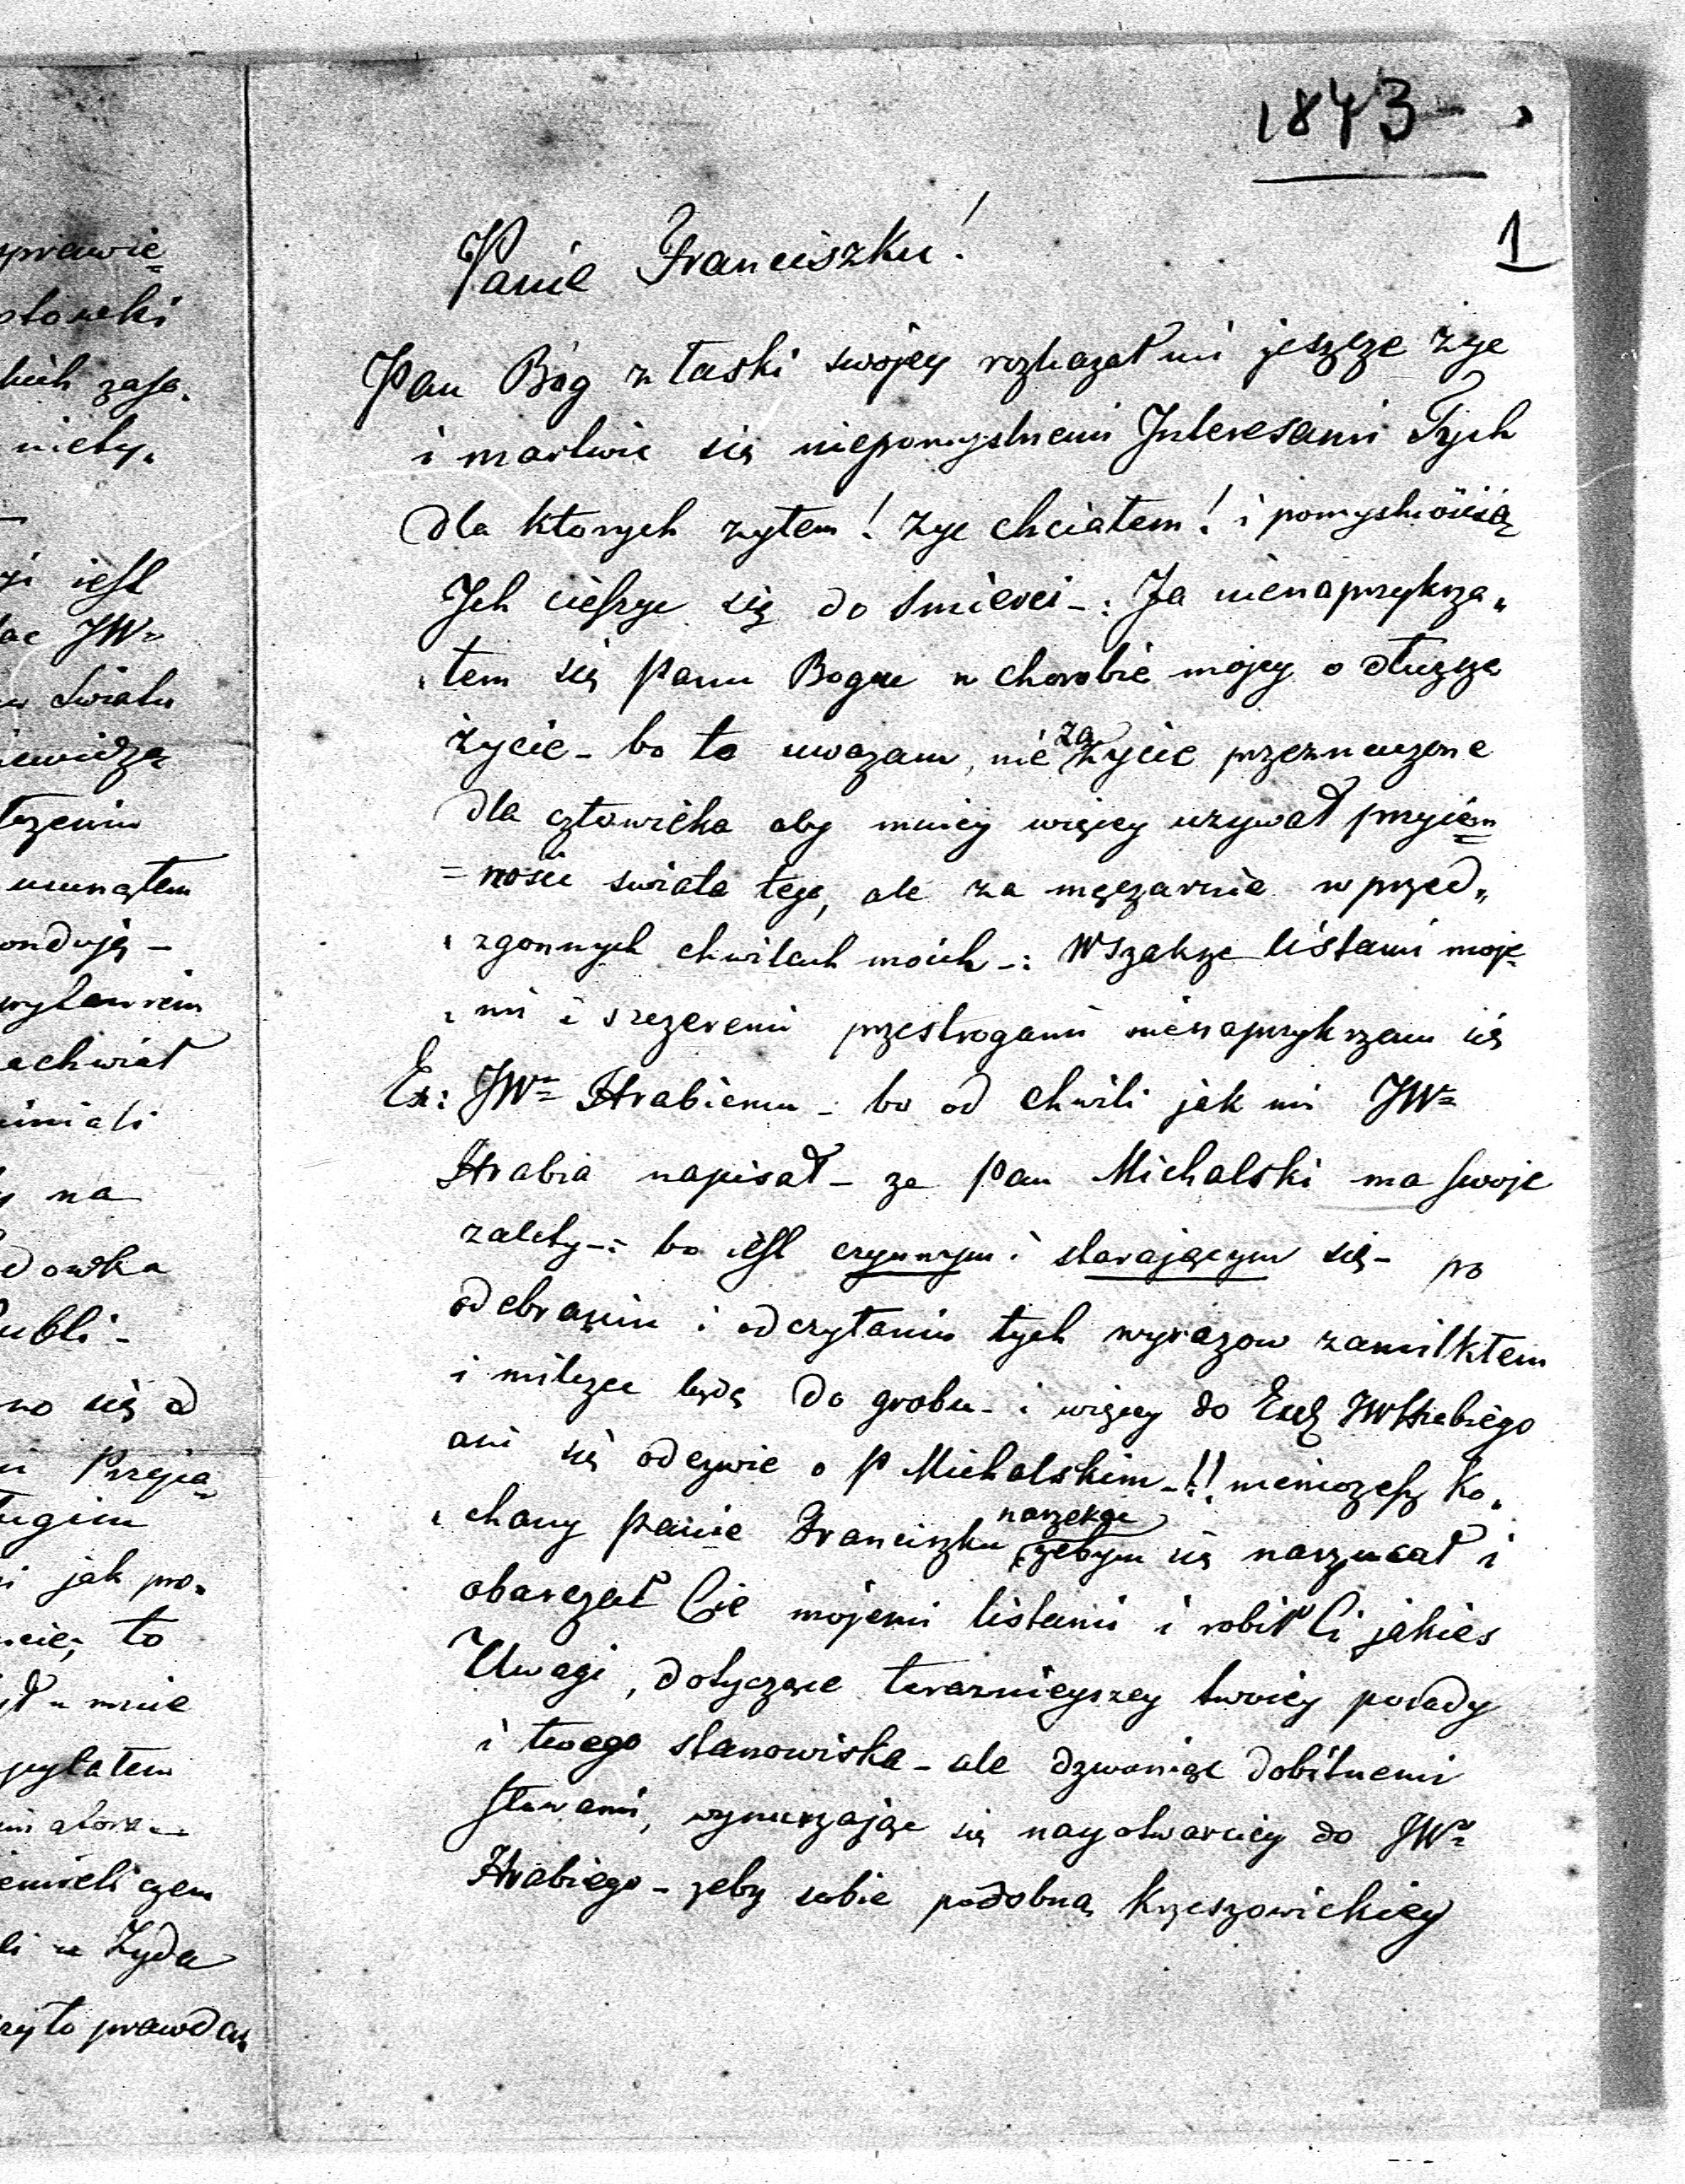 1843
1
Panie Franciszku!
Pan Bóg z łaski swojey rozkazał mi jeszcze życ
i martwic się niepomyslnemi Interesami Tych
dla ktorych zyłem! zyc chciałem! i pomyslnością
Ich cieszyc się do smierci -: Ja nienaprzykrza„
„łem się Panu Bogu w chorobie mojey o dłuzsze
życie - bo to uwazam, nie za życie przeznaczone
dla człowieka aby mniey więcey uzywał przyiem=
=nosci swiata tego, ale za męczarnie w przed„
„zgonnych chwilach moich -: Wszakze listami moje„
„mi i szczeremi przestrogami nienaprzykrzam się
Ex: JWn= Hrabiemu - bo od chwili jak mi JWn=
Hrabia napisał - ze Pan Michalski ma swoje
zalety -: bo iest czynnym i starającym się - po
odebraniu i odczytaniu tych wyrazow zamilkłem
i milczec będę do grobu - i więcy do Exel JWHrabiego
ani się odezwie o P Michalskim -!! niemozesz Ko„
„chany Panie Franciszku narzekac żebym się narzucał i
obarczał Cie mojemi listami i robił Ci jakies
Uwagi, dotyczące terazniejszey twoiey posady
i twego stanowiska - ale dzwoniąc dobitnemi
słowami, wynurzając się nayotwarciey do JWn=
Hrabiego - zeby sobie podobną Krzeszowickiey
sprawie=
nieby„
iest
JWn
swiatu
usunąłem
na
się
Przyja=
jak pro„
to
mnie
pytałem
czem
Zyda
to prawda